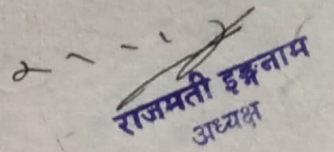 राजमती इङ्नाम
अध्यक्ष